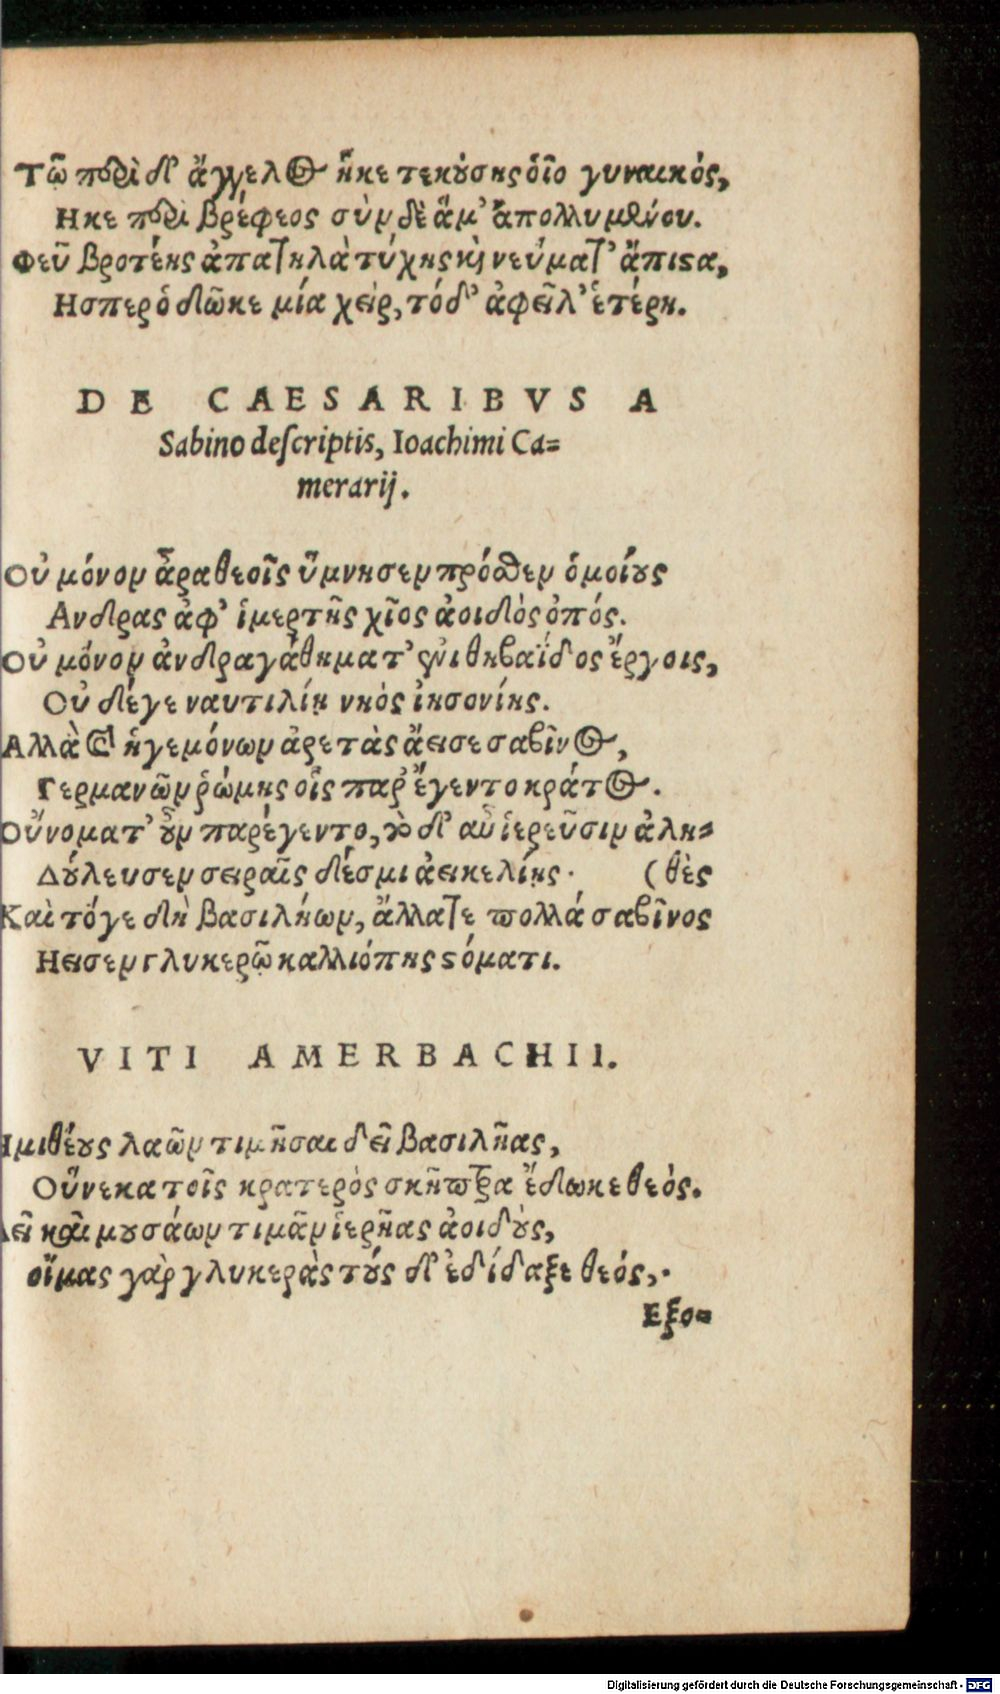 Τῷ περὶ δ' ἄγγελος ἧκε τεκούσης οἷο γυναικός,
Ηκε περὶ βρέφεος σὺν δὲ ἅμ' ἀπολλυμένου.
Φεῦ βροτέης ἀπατηλὰ τύχης καὶ νεύματ' ἄπιστα,
Ησπερ ὁ δῶκε μία χεὶρ, τόδ' ἀφεῖλ' ἑτέρη.
DE CAESARIBVS A
Sabino deſcriptis, Ioachimi Ca=
merarij.
Οὐ μόνον ἆρα θεοῖς ὕμνησεν πρόσθεν ὁμοίους
Ανδρας ἀφ' ἱμερτῆς χῖος ἀοιδὸς ὀπός.
Οὐ μόνον ἀνδραγάθηματ' ἐνὶ θηβαΐδος ἔργοις,
Οὐ δέγε ναυτιλίῃ νηὸς ἰησονίης.
Αλλὰ καὶ ἡγεμόνων ἀρετὰς ἄεισε σαβῖνος,
Γερμανῶν ῥώμης οἷς παρ' ἔγεντο κράτος.
Οὔνοματ' οὖν παρέγεντο, τὸ δ' αὖ ἱερεῦσιν ἀλη=
Δούλευσεν σειραῖς δέσμι ἀεικελίῃς. (θὲς
Καὶ τόγε δὴ βασιλήων, ἄλλατε πολλά σαβῖνος
Ηεισεν γλυκερῷ καλλιόπης στόματι.
VITI AMERBACHII.
Ημιθέους λαῶν τιμῆσαι δεῖ βασιλῆας,
Οὕνεκα τοῖς κρατερὸς σκῆπτρα ἔδωκε θεὸς.
Δεῖ καὶ μουσάων τιμᾶν ἱερῆας ἀοιδοὺς,
οἴμας γὰρ γλυκερὰς τούς δ' ἐδίδαξε θεός,.
Εξο=
Digitalisierung gefördert durch die Deutsche Forschungsgemeinschaft - DFG